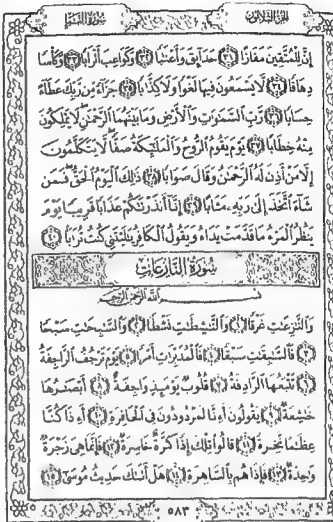 الجزء الثلاثون
سورة النبإ
إِنَّ لِلْمُتَّقِينَ مَفَازًا ﴿٣١﴾ حَدَآئِقَ وَأَعْنَٰبًا ﴿٣٢﴾ وَكَوَاعِبَ أَتْرَابًا ﴿٣٣﴾ وَكَأْسًا
دِهَاقًا ﴿٣٤﴾ لَّا يَسْمَعُونَ فِيهَا لَغْوًا وَلَا كِذَّٰبًا ﴿٣٥﴾ جَزَآءً مِّن رَّبِّكَ عَطَآءً
حِسَابًا ﴿٣٦﴾ رَّبِّ ٱلسَّمَٰوَٰتِ وَٱلْأَرْضِ وَمَا بَيْنَهُمَا ٱلرَّحْمَٰنِ لَا يَمْلِكُونَ
مِنْهُ خِطَابًا ﴿٣٧﴾ يَوْمَ يَقُومُ ٱلرُّوحُ وَٱلْمَلَٰٓئِكَةُ صَفًّا لَّا يَتَكَلَّمُونَ
إِلَّا مَنْ أَذِنَ لَهُ ٱلرَّحْمَٰنُ وَقَالَ صَوَابًا ﴿٣٨﴾ ذَٰلِكَ ٱلْيَوْمُ ٱلْحَقُّ فَمَن
شَآءَ ٱتَّخَذَ إِلَىٰ رَبِّهِۦ مَـَٔابًا ﴿٣٩﴾ إِنَّآ أَنذَرْنَٰكُمْ عَذَابًا قَرِيبًا يَوْمَ
يَنظُرُ ٱلْمَرْءُ مَا قَدَّمَتْ يَدَاهُ وَيَقُولُ ٱلْكَافِرُ يَٰلَيْتَنِى كُنتُ تُرَٰبًۢا ﴿٤٠﴾
سورة النازعات
بسم الله الرحمن الرحيم
وَٱلنَّٰزِعَٰتِ غَرْقًا ﴿١﴾ وَٱلنَّٰشِطَٰتِ نَشْطًا ﴿٢﴾ وَٱلسَّٰبِحَٰتِ سَبْحًا
﴿٣﴾ فَٱلسَّٰبِقَٰتِ سَبْقًا ﴿٤﴾ فَٱلْمُدَبِّرَٰتِ أَمْرًا ﴿٥﴾ يَوْمَ تَرْجُفُ ٱلرَّاجِفَةُ
﴿٦﴾ تَتْبَعُهَا ٱلرَّادِفَةُ ﴿٧﴾ قُلُوبٌ يَوْمَئِذٍ وَاجِفَةٌ ﴿٨﴾ أَبْصَٰرُهَا
خَٰشِعَةٌ ﴿٩﴾ يَقُولُونَ أَءِنَّا لَمَرْدُودُونَ فِى ٱلْحَافِرَةِ ﴿١٠﴾ أَءِذَا كُنَّا
عِظَٰمًا نَّخِرَةً ﴿١١﴾ قَالُوا۟ تِلْكَ إِذًا كَرَّةٌ خَاسِرَةٌ ﴿١٢﴾ فَإِنَّمَا هِىَ زَجْرَةٌ
وَٰحِدَةٌ ﴿١٣﴾ فَإِذَا هُم بِٱلسَّاهِرَةِ ﴿١٤﴾ هَلْ أَتَىٰكَ حَدِيثُ مُوسَىٰٓ ﴿١٥﴾
٥٨٣